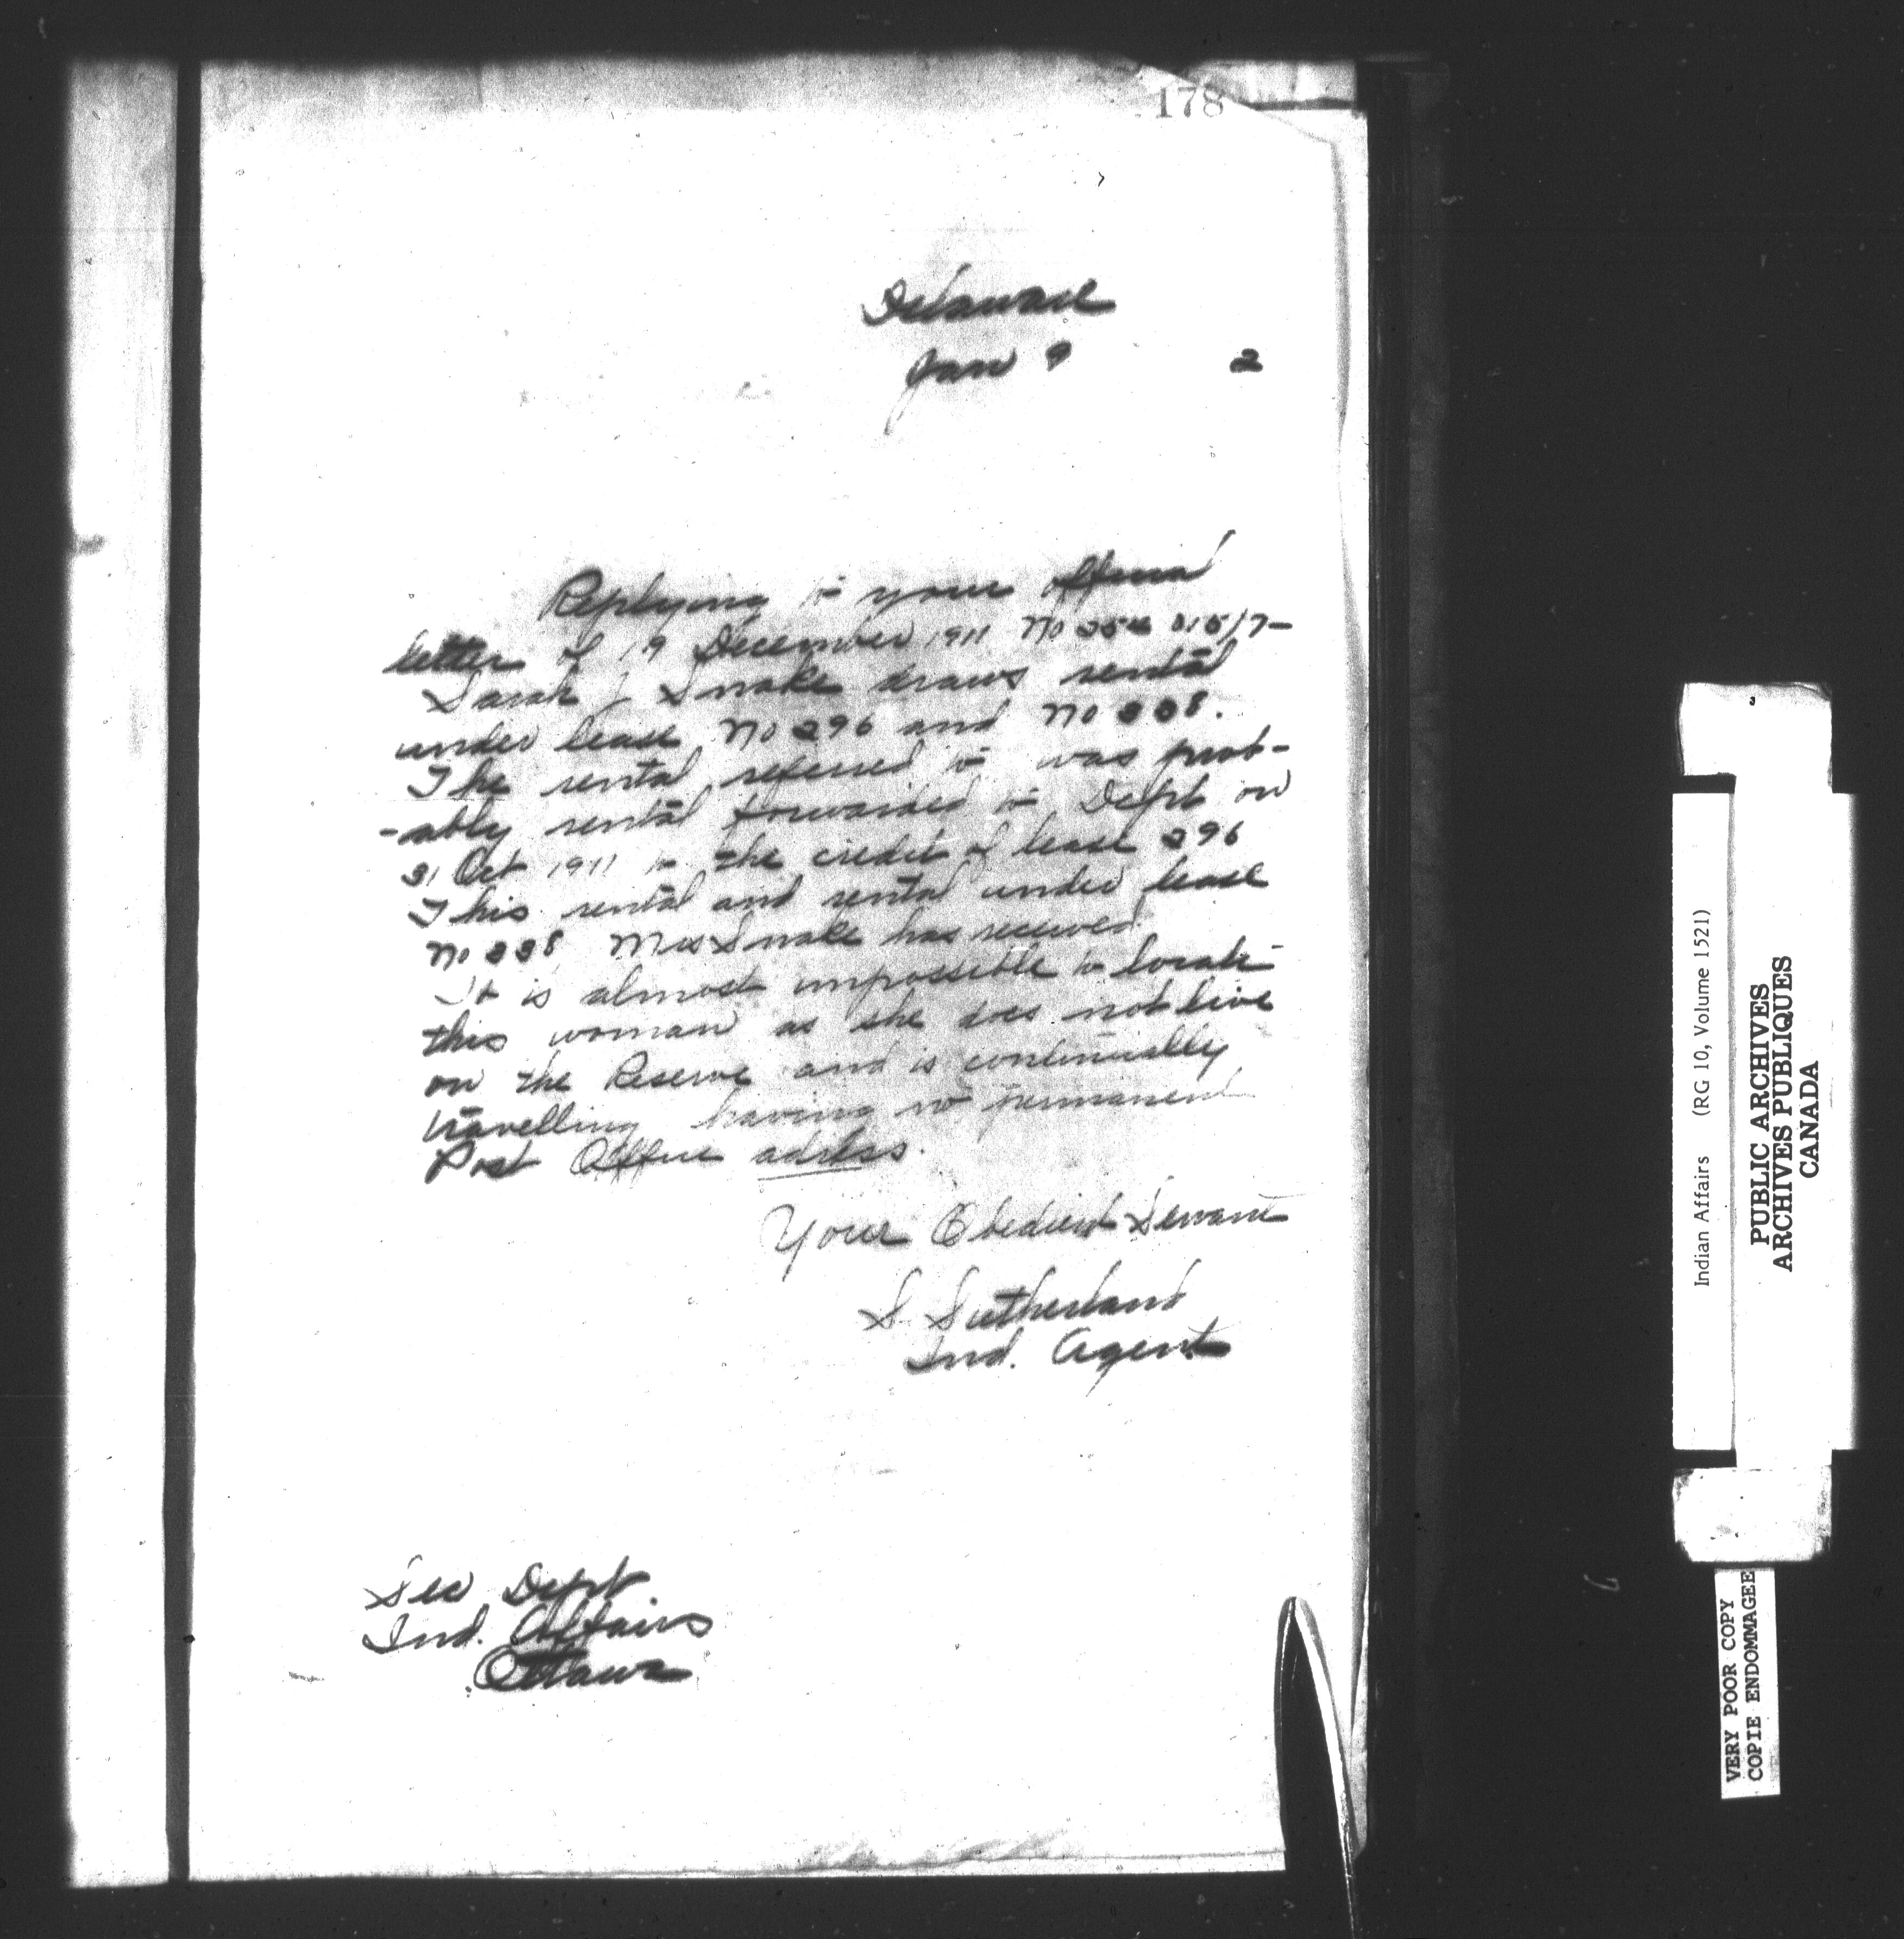 178
Delaware
Jan 9 2
Replying to your official
letter of 19 December 1911 No
Sarah J Snake draws rental
under lease No 296 and No
The rental referred to was prob-
-ably rental forwarded to Dept on
31 Oct 1911 to the credit of lease 296
This rental and rental under lease
No Mrs Snake has received
It is almost impossible to locate
this woman as she does not live
on the Reserve and is continually
travelling having no permanent
Post Office adress.
Your Obedient Servant
S. Sutherland
Ind. Agent
Sec Dept
Ind. Affairs
Ottawa
Indian Affairs (RG 10, Volume 1521)
PUBLIC ARCHIVES
ARCHIVES PUBLIQUES
CANADA
VERY POOR COPY
COPIE ENDOMMAGEE